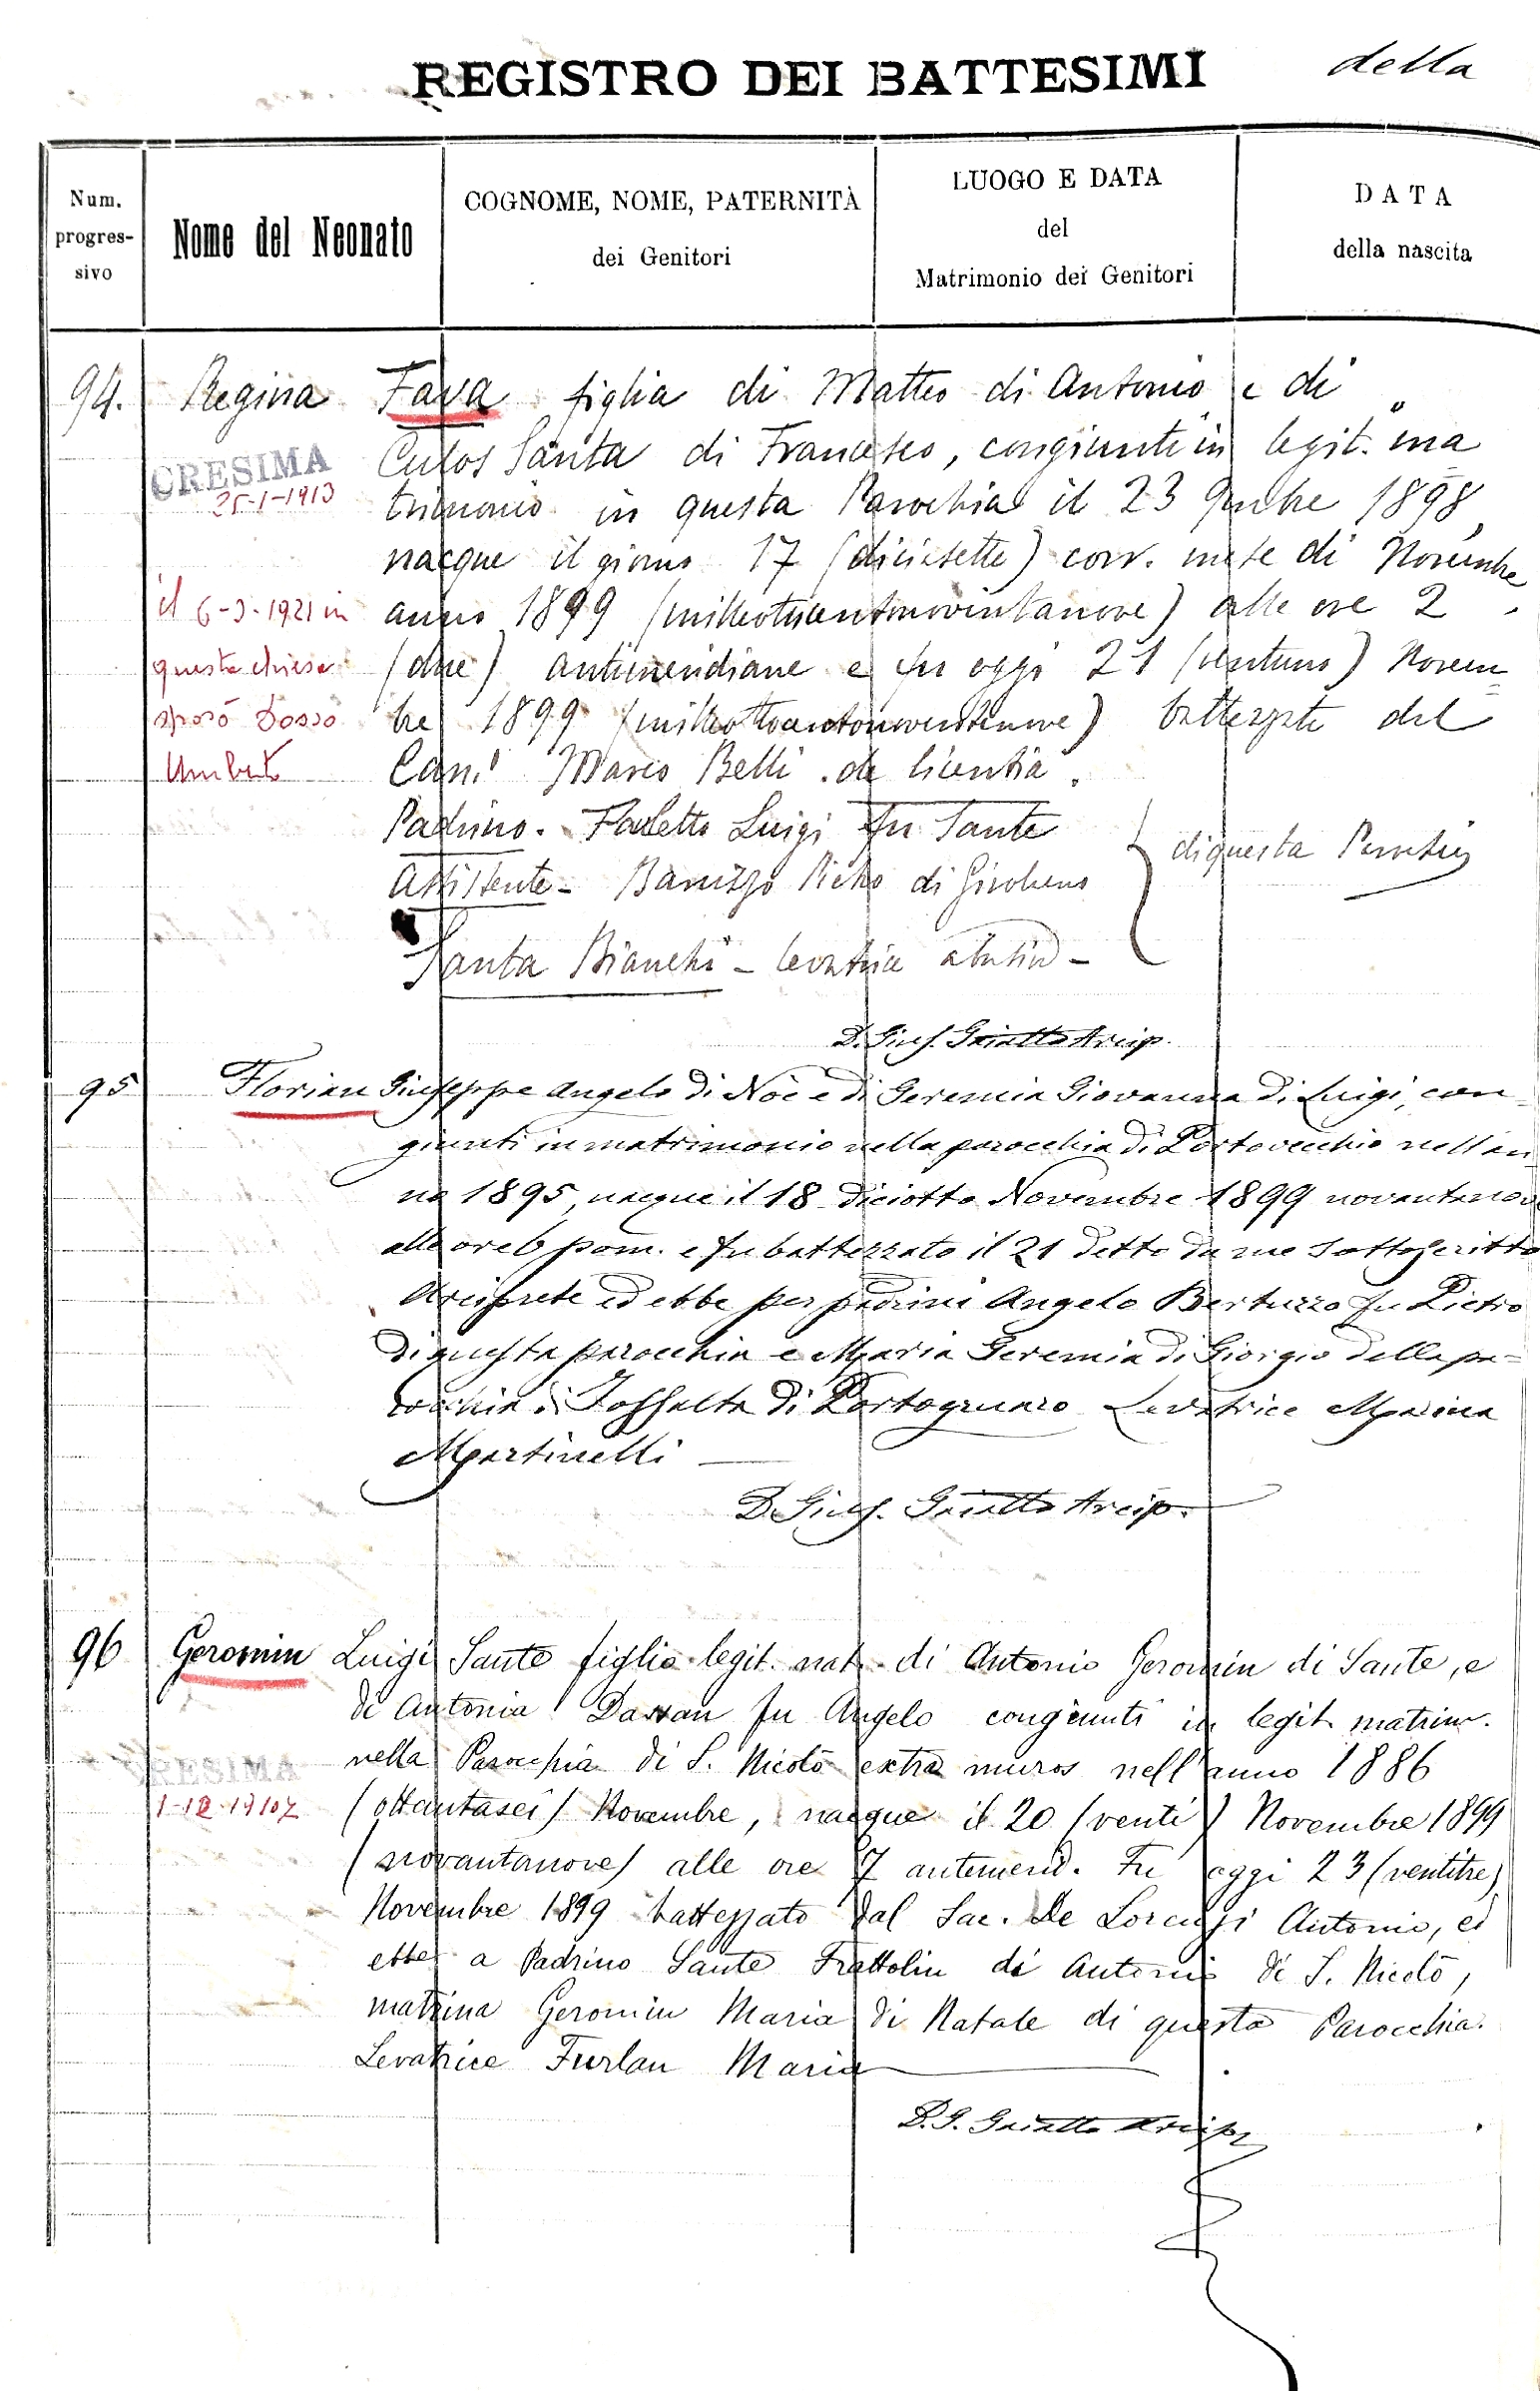 REGISTRO DEI BATTESIMI della
Num. progres- sivo
Nome del Neonato
COGNOME, NOME, PATERNITÀ dei Genitori
LUOGO E DATA del Matrimonio dei Genitori
DATA della nascita
94. Regina Fava figlia di Matteo di Antonio e di
Culos Santa di Francesco, congiunti in legit. ma
trimonio in questa Parochia il 23 9mbre 1898
nacque il giorno 17 (diciasette) corr. mese di Novembre
anno 1899 (milleottocentonovantanove) alle ore 2
(due) antimeridiane e fu oggi 21 (ventuno) Novem
bre 1899 (milleottocentonovantanove) battezzata dal
Can. Marco Belli de licentia.
Padrino. Falletto Luigi fu Sante
Assistente - Pietro di Girolamo
di questa Parochia
Santa Bianchi - levatrice
CRESIMA
25-1-1913
il 6-3-1921 in
questa chiesa
sposò Dosso
Umberto
D. Gius. Gaiatto Arcip.
95 Florian Giuseppe Angelo di Noè e di Geremia Giovanna di Luigi, con
giunti in matrimonio nella parocchia di Portovecchio nell'an
no 1895, nacque il 18 diciotto Novembre 1899 novantanove
alle ore 6 pom. e fu battezzato il 21 detto da me sottoscritto
Arciprete ed ebbe per padrini Angelo Bertuzzo fu Pietro
di questa parocchia e Maria Geremia di Giorgio della pa=
rocchia di Fossalta di Portogruaro Levatrice Marina
Martinelli
D. Gius. Gaiatto Arcip.
96 Geromin Luigi Sante figlio legit. nat. di Antonio Geromin di Sante, e
di Antonia Dassan fu Angelo congiunti in legit. matrim.
nella Parocchia di S. Nicolò extra muros nell'anno 1886
(ottantasei) Novembre, nacque il 20 (venti) Novembre 1899
(novantanove) alle ore 7 antemerid. Fu oggi 23 (ventitre)
Novembre 1899 battezzato dal Sac. De Lorenzi Antonio, ed
ebbe a Padrino Sante Frattolin di Antonio di S. Nicolò,
matrina Geromin Maria di Natale di questa Parocchia.
Levatrice Furlan Maria
CRESIMA
D. G. Gaiatto Arcip